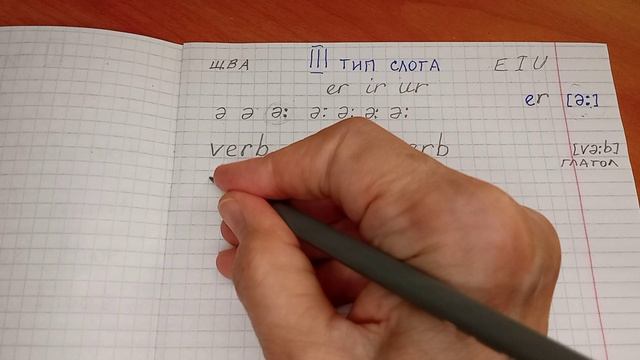 ШВА III ТИП СЛОГА E I U
er ir ur
er [ə:]
ə ə ə: ə: ə: ə: ə:
verb erb [və:b]
ГЛАГОЛ